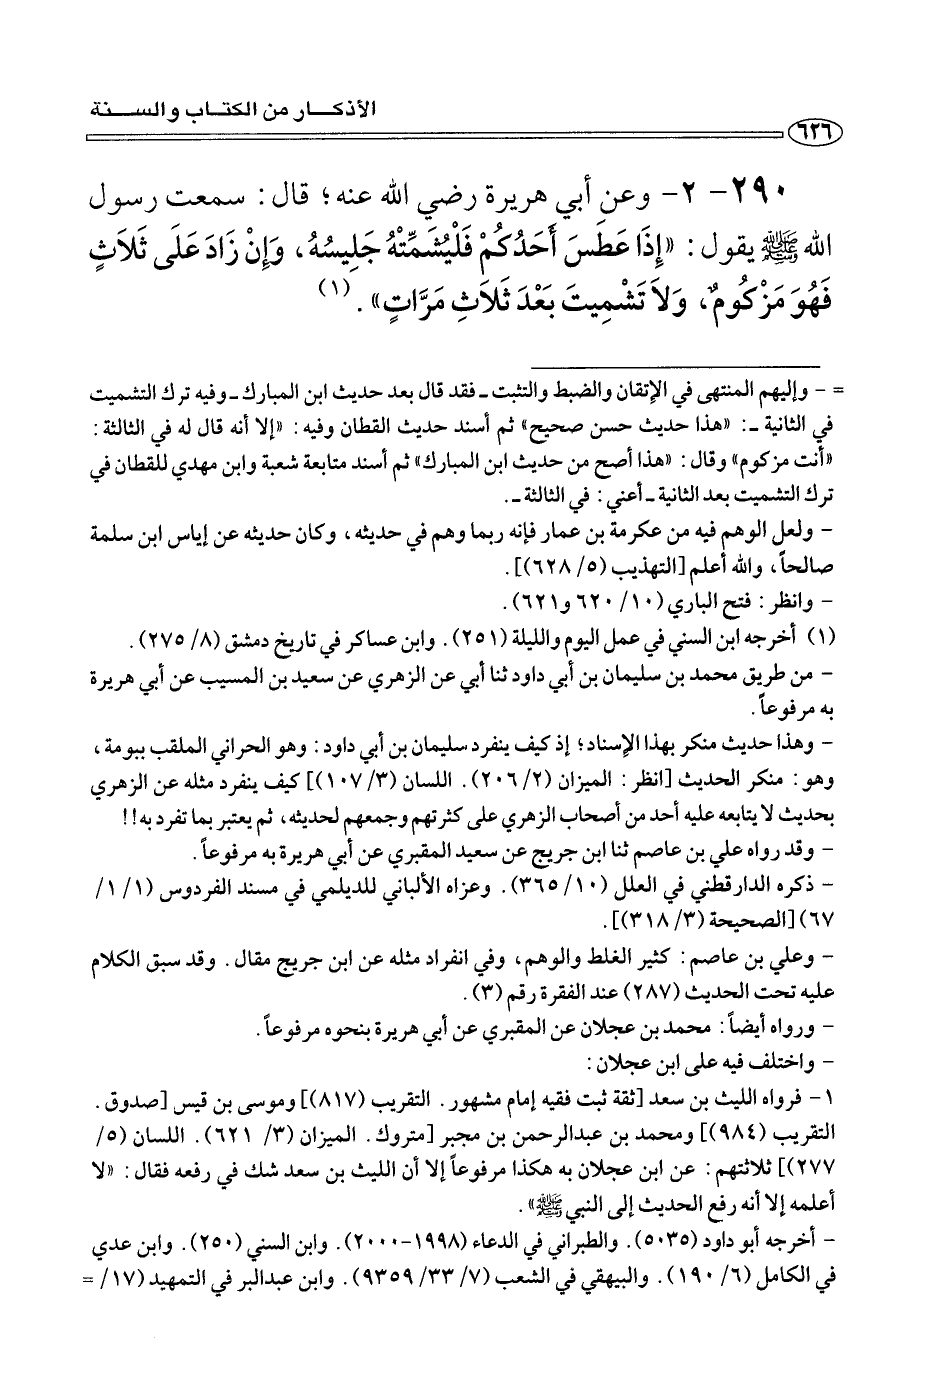 الأذكـــار من الكتـاب والســـنة
٦٢٦
٢٩٠- ٢- وعن أبي هريرة رضي الله عنه؛ قال: سمعت رسول
الله ﷺ يقول: «إِذَا عَطَسَ أَحَدُكُمْ فَلْيُشَمِّتْهُ جَلِيسُهُ، وَإِنْ زَادَ عَلَى ثَلَاثٍ
فَهُوَ مَزْكُومٌ، وَلاَ تَشْمِيتَ بَعْدَ ثَلَاثِ مَرَّاتٍ». (١)
= - وإليهم المنتهى في الإتقان والضبط والتثبت ـ فقد قال بعد حديث ابن المبارك ـ وفيه ترك التشميت
في الثانية ـ: «هذا حديث حسن صحيح» ثم أسند حديث القطان وفيه: «إلا أنه قال له في الثالثة:
«أنت مزكوم» وقال: «هذا أصح من حديث ابن المبارك» ثم أسند متابعة شعبة وابن مهدي للقطان في
ترك التشميت بعد الثانية ـ أعني: في الثالثة ـ.
- ولعل الوهم فيه من عكرمة بن عمار فإنه ربما وهم في حديثه، وكان حديثه عن إياس ابن سلمة
صالحاً، والله أعلم [التهذيب (٥/ ٦٢٨)].
- وانظر: فتح الباري (١٠/ ٦٢٠ و٦٢١).
(١) أخرجه ابن السني في عمل اليوم والليلة (٢٥١). وابن عساكر في تاريخ دمشق (٨/ ٢٧٥).
- من طريق محمد بن سليمان بن أبي داود ثنا أبي عن الزهري عن سعيد بن المسيب عن أبي هريرة
به مرفوعاً.
- وهذا حديث منكر بهذا الإسناد؛ إذ كيف ينفرد سليمان بن أبي داود: وهو الحراني الملقب ببومة،
وهو: منكر الحديث [انظر: الميزان (٢/ ٢٠٦). اللسان (٣/ ١٠٧)] كيف ينفرد مثله عن الزهري
بحديث لا يتابعه عليه أحد من أصحاب الزهري على كثرتهم وجمعهم لحديثه، ثم يعتبر بما تفرد به!!
- وقد رواه علي بن عاصم ثنا ابن جريج عن سعيد المقبري عن أبي هريرة به مرفوعاً.
- ذكره الدارقطني في العلل (١٠/ ٣٦٥). وعزاه الألباني للديلمي في مسند الفردوس (١/ ١/
٦٧) [الصحيحة (٣/ ٣١٨)].
- وعلي بن عاصم: كثير الغلط والوهم، وفي انفراد مثله عن ابن جريج مقال. وقد سبق الكلام
عليه تحت الحديث (٢٨٧) عند الفقرة رقم (٣).
- ورواه أيضاً: محمد بن عجلان عن المقبري عن أبي هريرة بنحوه مرفوعاً.
- واختلف فيه على ابن عجلان:
١- فرواه الليث بن سعد [ثقة ثبت فقيه إمام مشهور. التقريب (٨١٧)] وموسى بن قيس [صدوق.
التقريب (٩٨٤)] ومحمد بن عبدالرحمن بن مجبر [متروك. الميزان (٣/ ٦٢١). اللسان (٥/
٢٧٧)] ثلاثتهم: عن ابن عجلان به هكذا مرفوعاً إلا أن الليث بن سعد شك في رفعه فقال: «لا
أعلمه إلا أنه رفع الحديث إلى النبي ﷺ».
- أخرجه أبو داود (٥٠٣٥). والطبراني في الدعاء (١٩٩٨-٢٠٠٠). وابن السني (٢٥٠). وابن عدي
في الكامل (٦/ ١٩٠). والبيهقي في الشعب (٧/ ٣٣/ ٩٣٥٩). وابن عبدالبر في التمهيد (١٧/ =